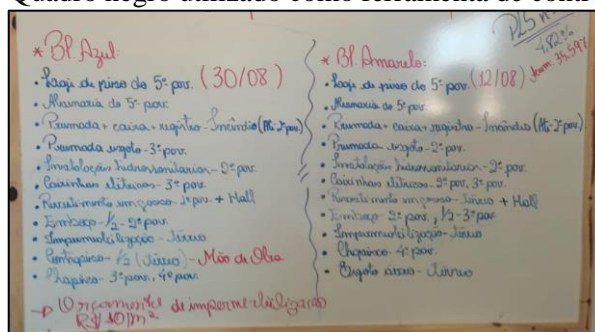 Quadro negro utilizado como ferramenta de contr
* Bl. Azul:
• Laje de piso do 5º pav. (30/08)
• Alvenaria do 5º pav.
• Prumada + caixa + registro - Incêndio
• Prumada esgoto - 3º pav.
• Instalação hidrossanitaria - 2º pav.
• Caixinhas elétricas - 3º pav.
• Revestimento em gesso - 1º pav. + Hall
• Emboço - 1/2 - 2º pav.
• Impermeabilização - Térreo
• Contrapiso - 1/2 (Térreo) - Mão de Obra
• Chapisco - 3º pav, 4º pav.
→ Orçamento de impermeabilização
R$ 10/m²
4,82%
* Bl. Amarelo:
• Laje de piso do 5º pav. (12/08) 35,59%
• Alvenaria do 5º pav.
• Prumada + caixa + registro - Incêndio
• Prumada esgoto - 2º pav.
• Instalação hidrossanitaria - 2º pav.
• Caixinhas elétricas - 2º pav, 3º pav.
• Revestimento em gesso - Térreo + Hall
• Emboço - 2º pav, 1/2 - 3º pav
• Impermeabilização - Térreo
• Chapisco - 4º pav.
• Esgoto - Térreo